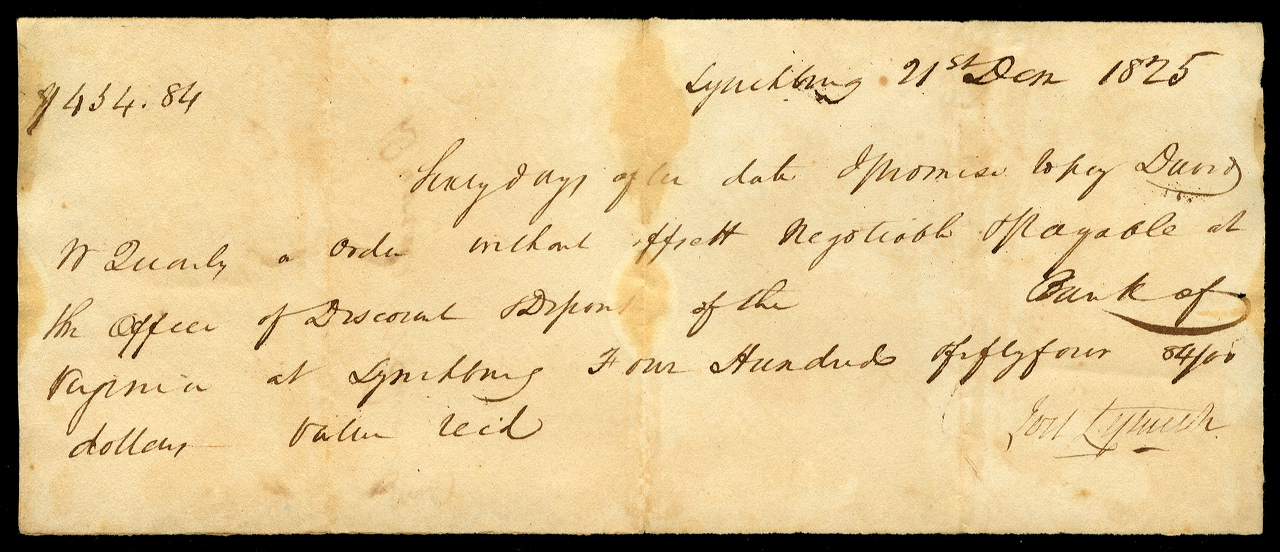 Lynchburg 21st Decr 1825
$454.84
Sixty days after date I promise to pay David
W Quarly or order without offsett Negotiable & Payable at
the Office of Discount & Deposit of the Bank of
Virginia at Lynchburg Four Hundred & fiftyfour 84/100
dollars value recd
Lynch